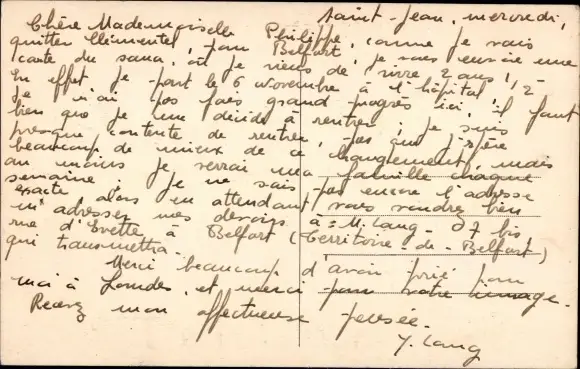 Saint-Jean, mercredi,
Chère Mademoiselle Philippe, comme je vais
quitter Clémentel, pour Belfort, je vais envoie une
carte du sana, où je viens de vivre 2 ans 1/2
En effet je part le 6 Novembre à l'hôpital
Je n'ai pas fais grand progrès ici, il faut
bien que je me décide à rentrer, je suis
presque contente de rentrer, pas que j'espère
beaucoup de mieux de ce changement, mais
au moins je verrai ma famille chaque
semaine. Je ne sais pas encore l'adresse
exacte alors en attendant vous voudrez bien
m'adresser mes devoirs à = M. Lang - 37 bis
rue d'Evette à Belfort (Territoire-de-Belfort)
qui transmettra.
Merci beaucoup d'avoir prié pour
moi à Lourdes, et merci pour votre image.
Recevez mon affectueuse pensée.
Y. Lang